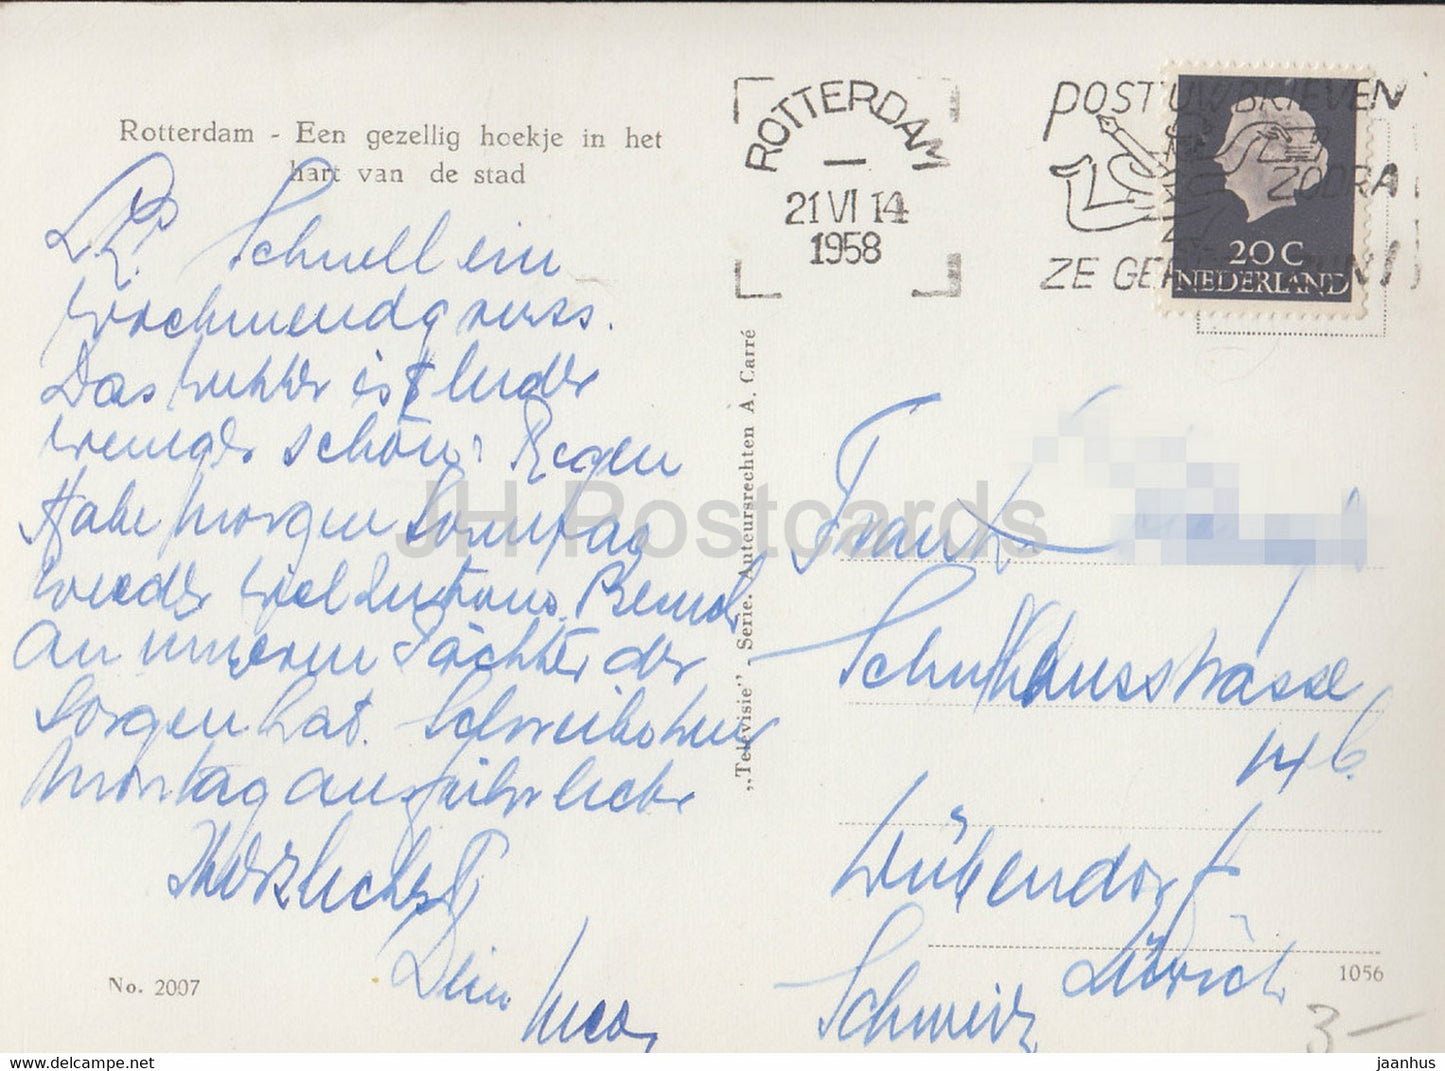 Rotterdam - Een gezellig hoekje in het
hart van de stad
Schnell ein
Wochenendgruss.
Das Wetter ist leider
weniger schön: Regen
Habe morgen Sonntag
wieder viel
an unseren Pächter der
Sorgen hat. Schreibe
Montag ausführlicher
Herzlichst
Dein
No. 2007
„Televisie” - Serie. Auteursrechten A. Carré
ROTTERDAM
21 VI 14
1958
POST UW BRIEVEN
ZODRA
ZE GE
20 C
NEDERLAND
Schulhausstrasse
14 b
Dübendorf
Zürich
Schweiz
1056
3-
JH Postcards
https://www.delcampe.net
jaanhus